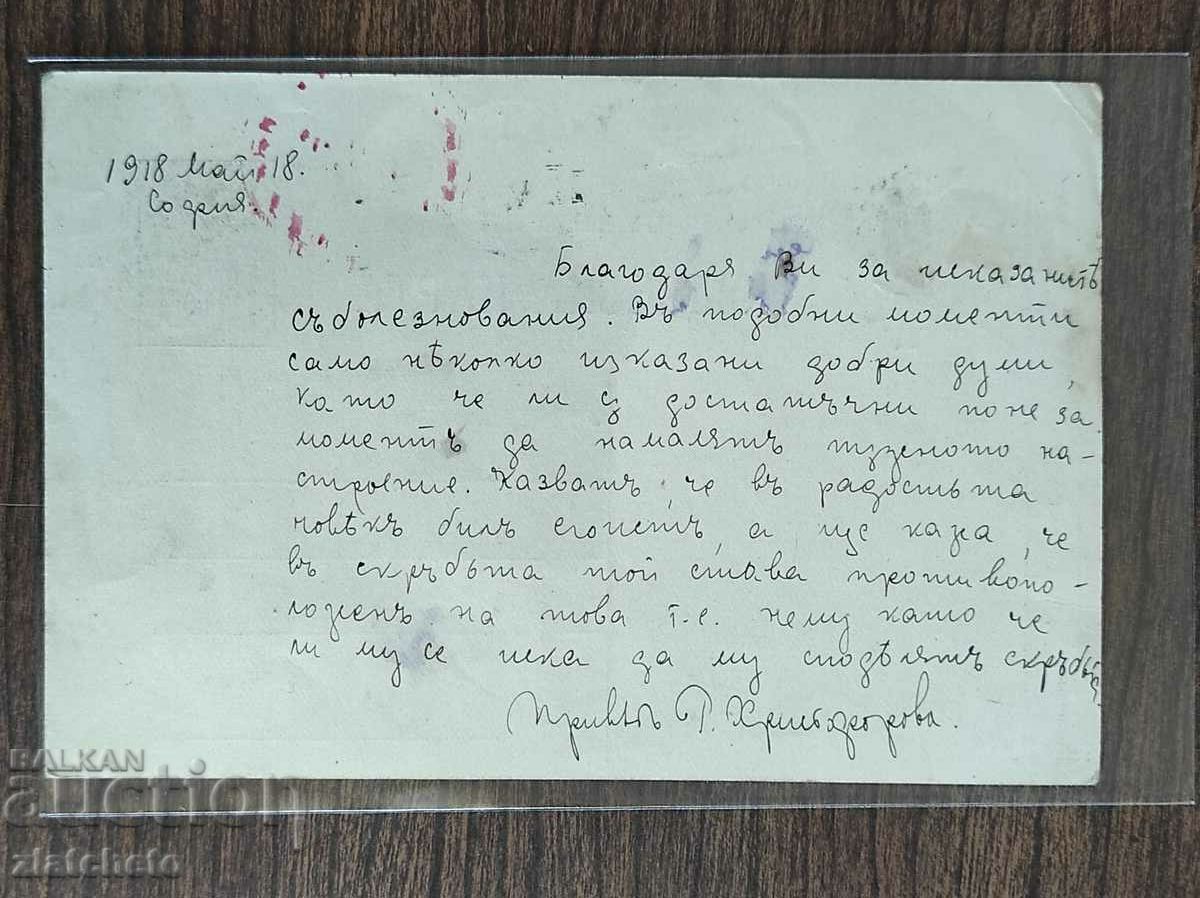 1918 Май 18.
София.
Благодаря Ви за исказанитѣ
съболезнования. Въ подобни моменти
само нѣколко изказани добри думи,
като че ли сѫ достатъчни поне за
моментъ да намалятъ тѫженото на-
строение. Казватъ, че въ радостьта
човѣкъ билъ егоистъ, а ще кажа, че
въ скръбьта той става противопо-
ложенъ на това т.е. нему като че
ли му се иска да му сподѣлятъ скръбьта.
Привѣтъ Р.
BALKAN
auction
zlatcheto